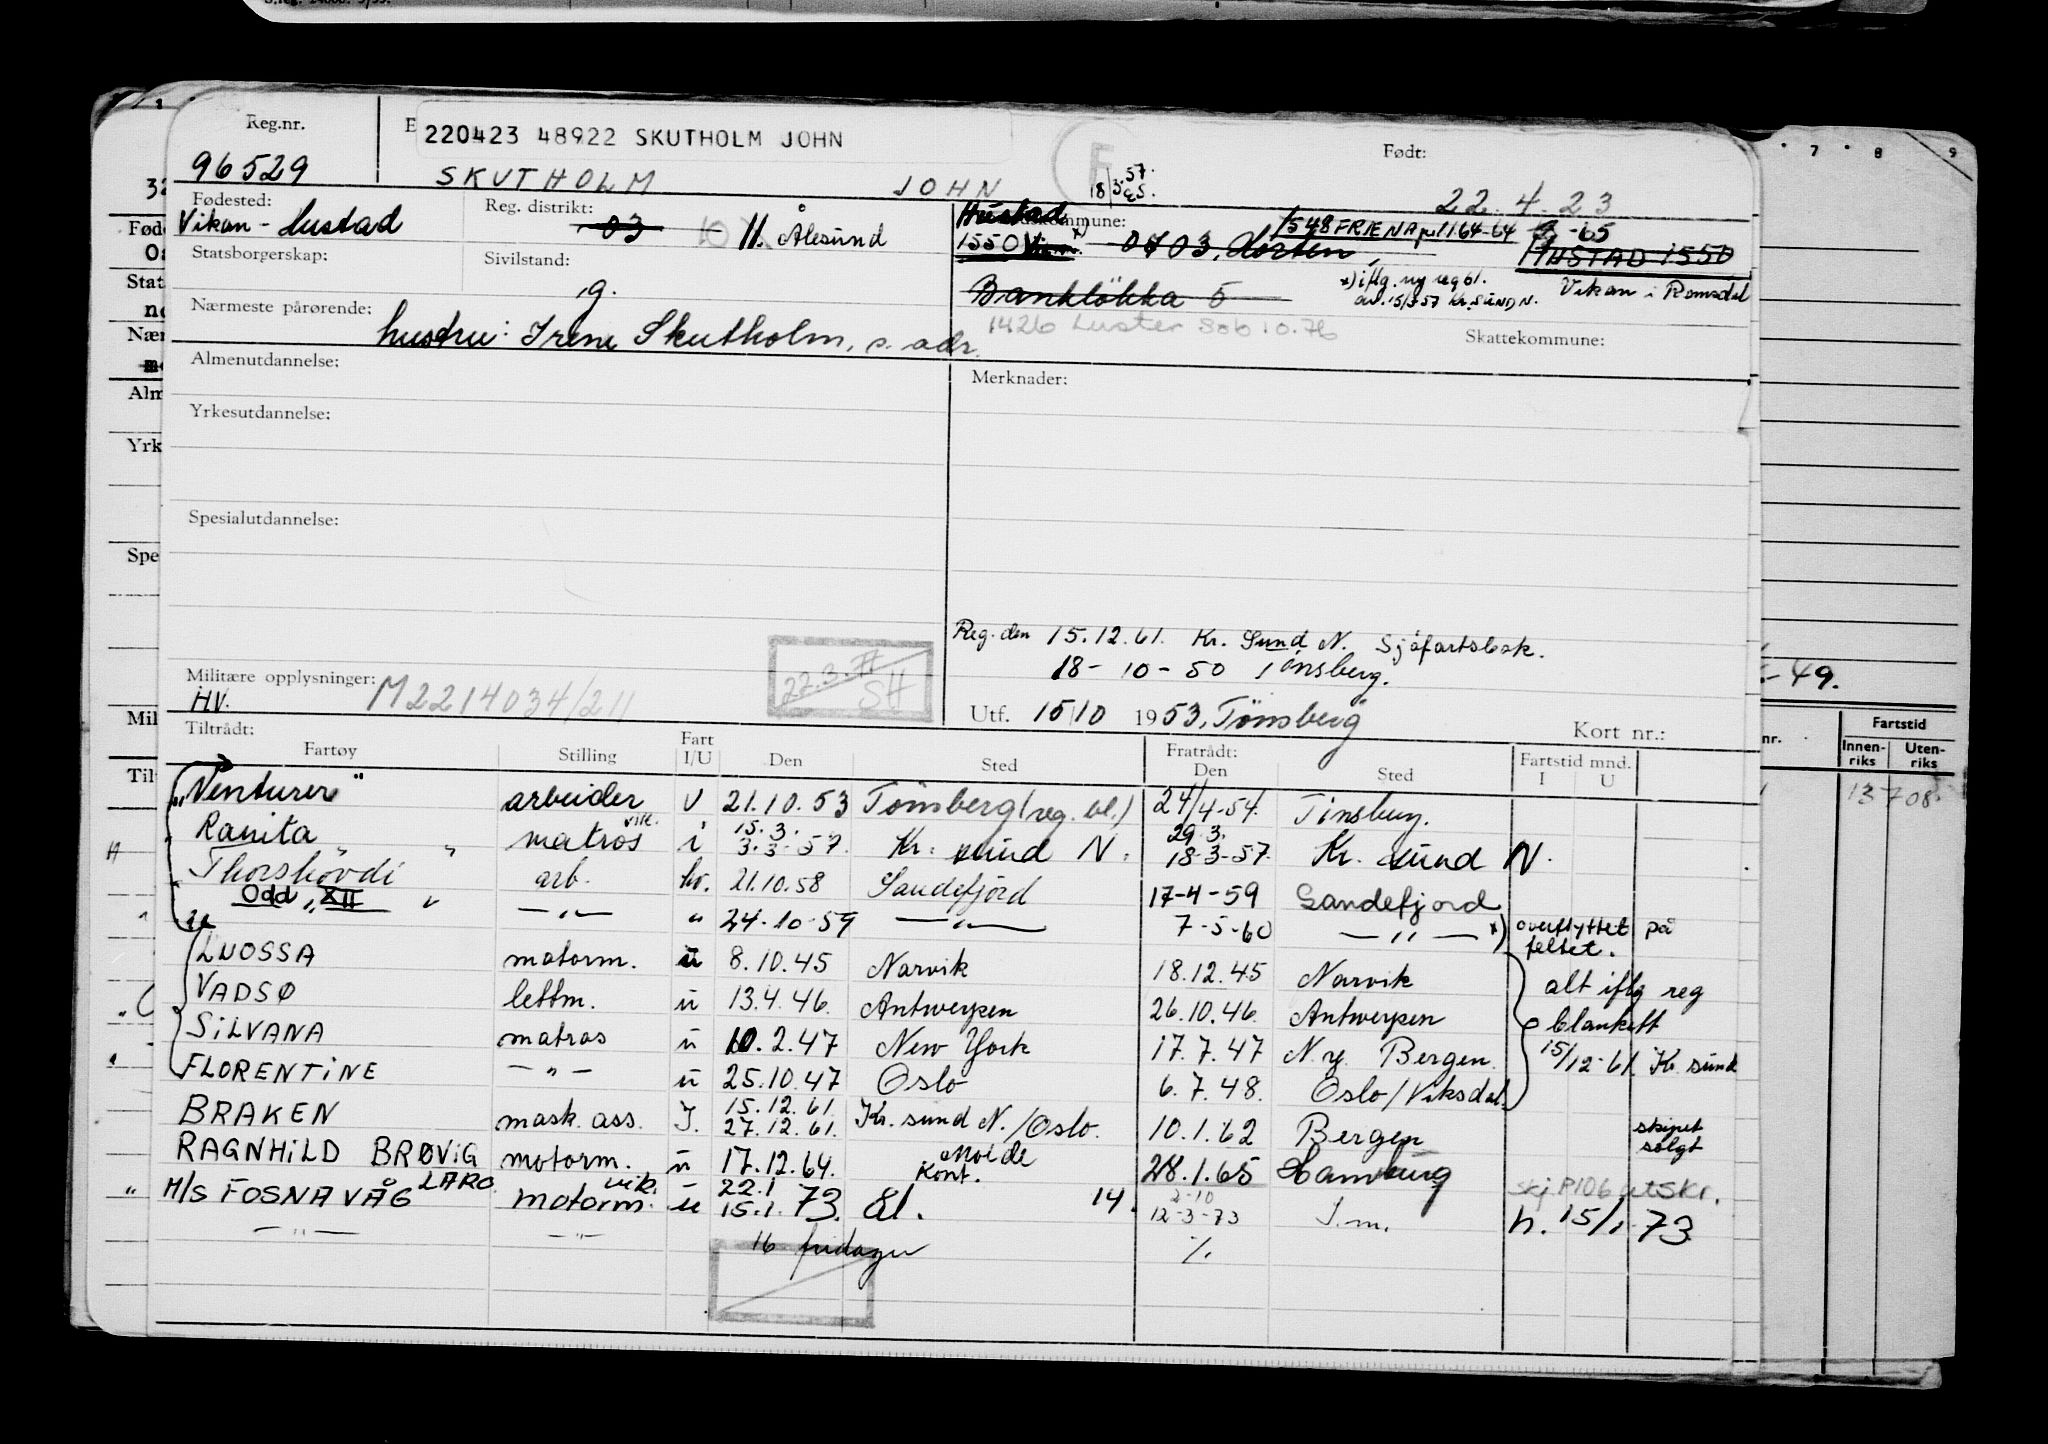 Reg.nr.
220423 48922 SKUTHOLM JOHN
Født:
96529
SKUTHOLM JOHN
18/3-57.
22-4-23
Fødested:
Vikan - Hustad
Reg. distrikt:
03
11. Ålesund
Hustad
kommune:
1550
0703, Horten,
1548 FRÆNA
HUSTAD 1550
Statsborgerskap:
Sivilstand:
g.
Bankløkka 5
x) iflg. ny reg bl.
av. 15/3 57 Kr. SUND N.
Vikan i Romsdal
Nærmeste pårørende:
hustru: Irene Skutholm, s. adr.
1426 Luster 10.76
Skattekommune:
Almenutdannelse:
Merknader:
Yrkesutdannelse:
Spesialutdannelse:
Reg. den 15.12.61. Kr. Sund N. Sjøfartsbok.
18-10-50 Tønsberg.
Militære opplysninger:
HV. M2214034/211
22.3.
SH
Utf. 15/10 1953, Tønsberg
Kort nr.:
Tiltrådt:
Fartøy Stilling Fart I/U Den Sted
Fratrådt:
Den Sted Fartstid mnd. I U
"Venturer" arbeider U 21.10.53 Tønsberg (reg. bl.) 24/4-54. Tønsberg.
Ranita matros vik. i 15.3. 3.3-57. Kr. sund N. 29.3. 18-3-57. Kr. sund N.
Thorshövdi arb. hv. 21.10.58 Sandefjord 17-4-59 Sandefjord
Odd XII " -"- " 24-10-59 -"- 7-5-60 -"- x) overflyttet på feltet.
LUOSSA motorm. u 8.10.45 Narvik 18.12.45 Narvik
VADSØ lettm. u 13.4.46. Antwerpen 26.10.46. Antwerpen
SILVANA matros u 10.2.47 New York 17.7.47 N.Y. Bergen.
FLORENTINE -"- u 25.10.47 Oslo 6.7.48. Oslo/Viksdal.
alt iflg reg
blankett
15/12-61. Kr. sund
BRAKEN mask. ass. I. 15.12.61. 27.12.61. Kr. sund N./Oslo. 10.1.62 Bergen skipet solgt
RAGNHILD BRØVIG motorm. u 17.12.64. Molde kont. 28.1.65 Hamburg
M/S FOSNAVÅG LARO motorm. vik. u 22.1 15.1.73. Ål. 14. 2-10 12-3-73 I.m. skj. P106 utskr.
h. 15/1-73
-"- -"- 16 fridager ./.
7 8 9
-49.
nr.
Fartstid
Innen-
riks
Uten-
riks
13 7 08